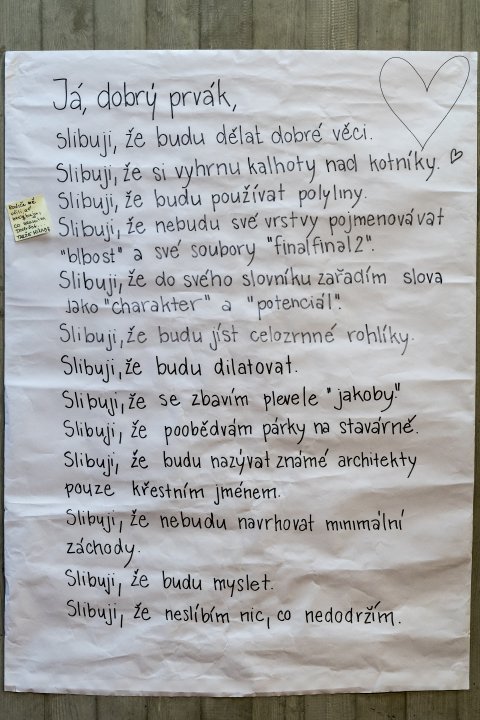 Já, dobrý prvák,
slibuji, že budu dělat dobré věci.
Slibuji, že si vyhrnu kalhoty nad kotníky.
Slibuji, že budu používat polyliny.
Slibuji, že nebudu své vrstvy pojmenovávat
"blbost" a své soubory "finalfinal2".
Slibuji, že do svého slovníku zařadím slova
jako "charakter" a "potenciál".
Slibuji, že budu jíst celozrnné rohlíky.
Slibuji, že budu dilatovat.
Slibuji, že se zbavím plevele "jakoby"
Slibuji, že poobědvám párky na stavárně.
Slibuji, že budu nazývat známé architekty
pouze křestním jménem.
Slibuji, že nebudu navrhovat minimální
záchody.
Slibuji, že budu myslet.
Slibuji, že neslíbím nic, co nedodržím.